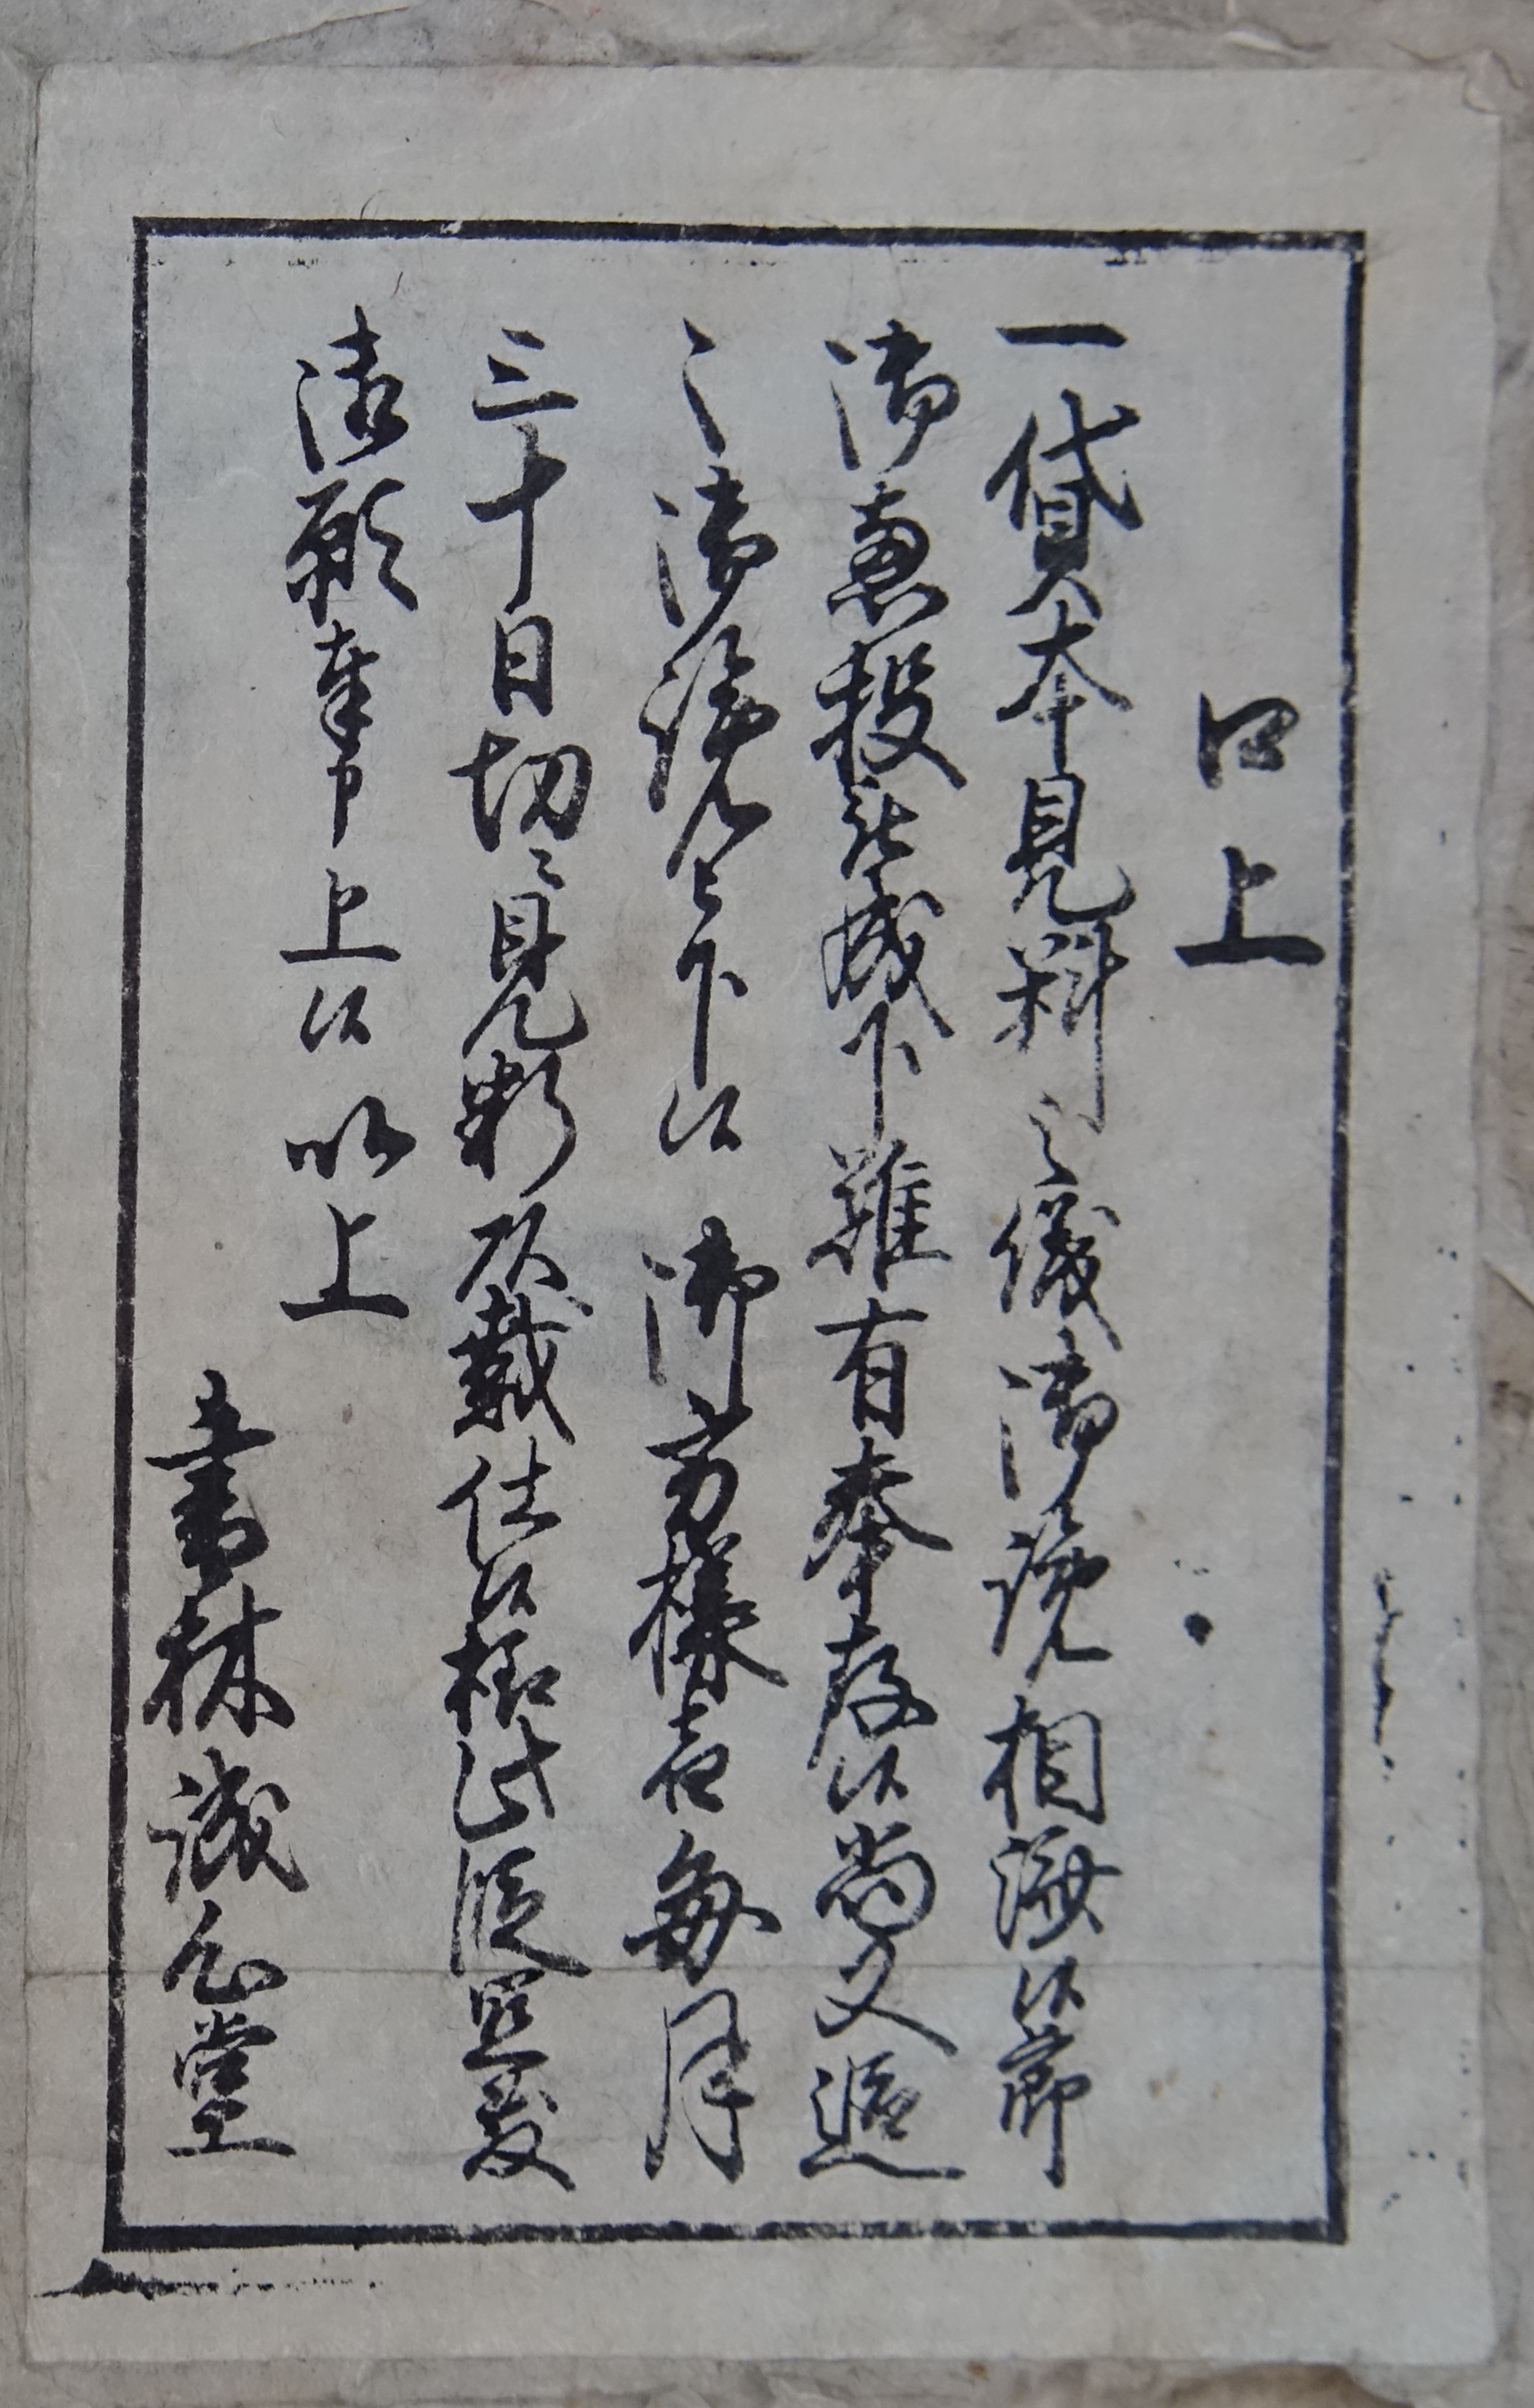 口上
一貸本見料之儀御読相済候節
御恵投被成下難有奉存候尚又追
々御読被下候御方様者毎月
三十日切ニ見料頂戴仕候極此段
御願奉申上候以上
書林誠心堂